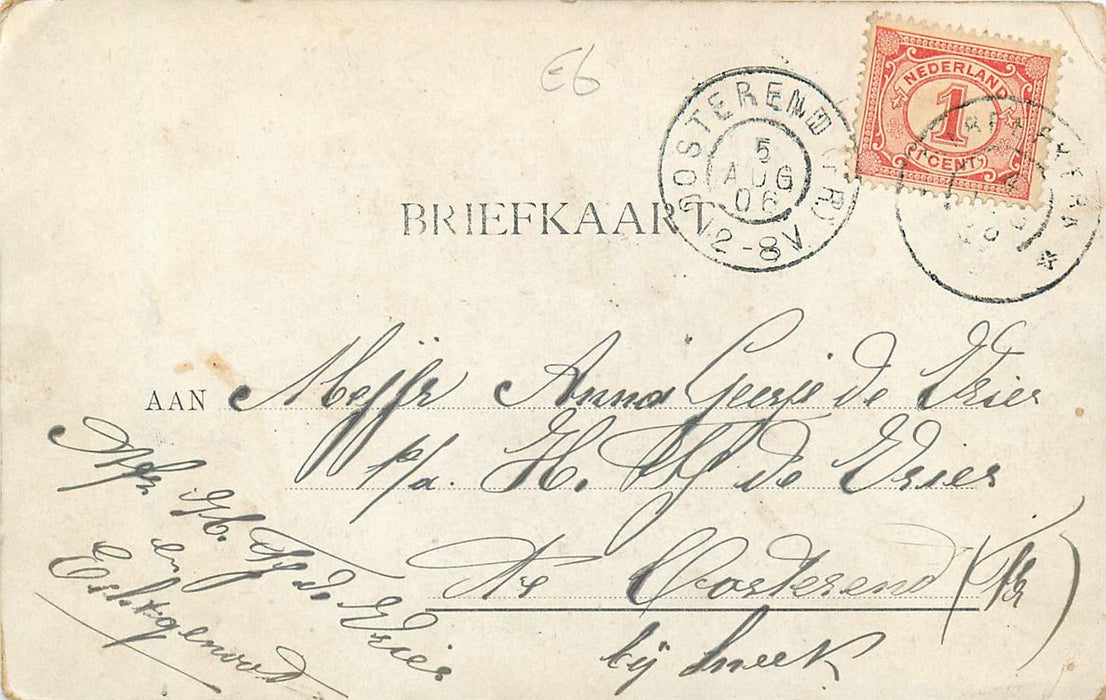 E6
NEDERLAND
1
1 CENT
OOSTEREND (FR)
5
AUG
06
12-8V
BRIEFKAART
AAN Mejfr Anna Geesje de Vries
p/a. H. Tj de Vries
Te Oosterend (Fr)
bij Sneek
H. Tj de Vries
en
Echtgenoot